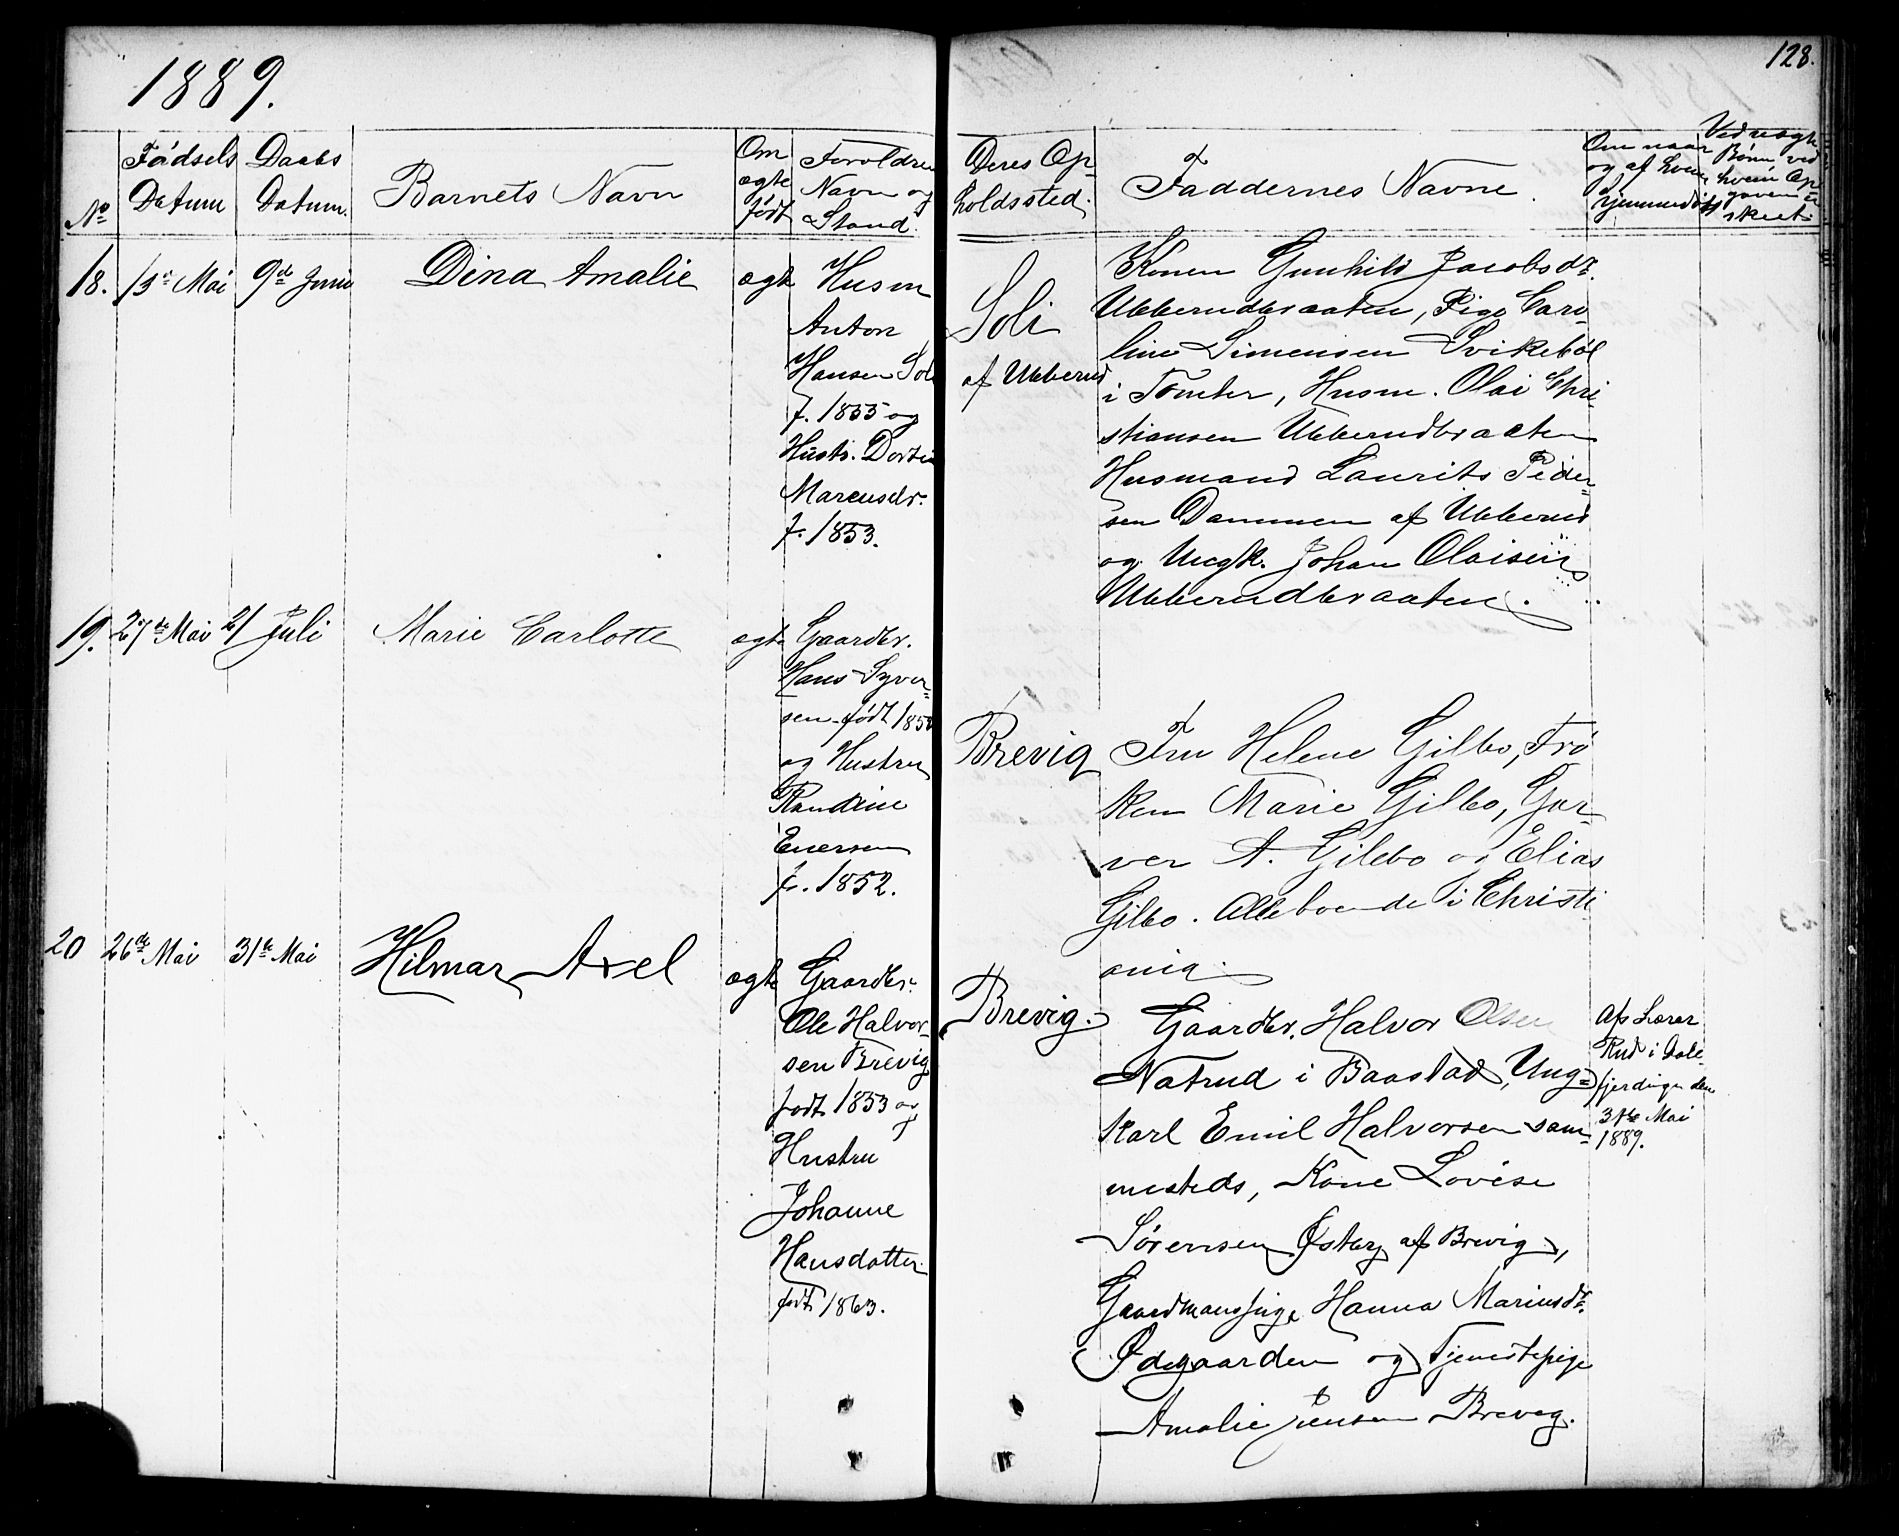 1889.
128.
No
Fødsels
Datum
Daabs
Datum.
Barnets Navn
Om
ægte
født
Foroldre
Navn og
Stand.
Deres Op-
holdssted.
Faddernes Navne.
Om naar
og af hvem
hjemmedøbt
Ved uægte
Børn ved
hvem Op-
gaven er
skeet.
18.
13de Mai
9de Juni
Dina Amalie
ægte
Husm
Anton
Hansen Soli
f. 1855 og
Hustr. Dortea
Marcusdr.
f. 1853.
Soli
af Ubberud
Konen Gunhild Jacobsdr.
Ubberudbraaten, Pige Caro-
line Simensen Svikebøl
i Tomter, Husm. Olai Chri-
stiansen Ubberudbraaten
Husmand Laurits Peder-
sen Dammen af Ubberud
og Ungk. Johan Olaisen
Ubberudbraaten.
19.
27de Mai
21 Juli
Marie Carlotte
ægte
Gaardbr.
Hans Syver-
sen født 1852
og Hustru
Randine
Enersen
f. 1852.
Brevig
Fru Helene Gilbo, Frø
ken Marie Gilbo, Gar-
ver A. Gilbo og Elias
Gilbo. Alle boende i Christi
ania.
20
26de Mai
31te Mai
Hilmar Axel
ægte
Gaardbr.
Ole Halvor-
sen Brevig
født 1853 og
Hustru
Johanne
Hansdatter
født 1863.
Brevig.
Gaardbr. Halvor Olsen
Natrud i Baastad, Ung-
karl Emil Halvorsen sam-
mesteds, Kone Lovise
Sørensen Østby af Brevig,
Gaardmandspige Hanna Mariusdr.
Ødegaarden og Tjenestepige
Amalie Jensen Breveg.
Af Lærer
Rud i Dale-
fjerdingen den
31te Mai
1889.